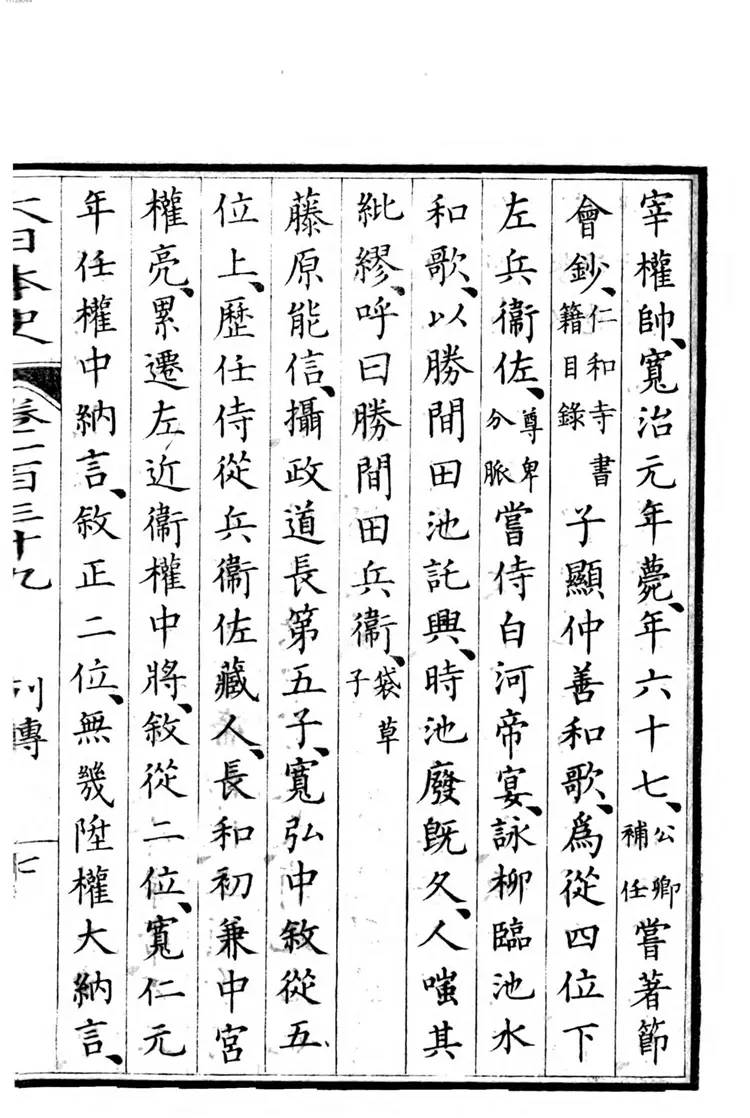 宰權帥、寬治元年薨、年六十七、公卿補任嘗著節
會鈔、仁和寺書籍目錄子顯仲善和歌、爲從四位下
左兵衞佐、尊卑分脈嘗侍白河帝宴、詠柳臨池水
和歌、以勝間田池託興、時池廢既久、人嗤其
紕繆、呼曰勝間田兵衞、袋草子
藤原能信、攝政道長第五子、寬弘中敘從五
位上、歷任侍從兵衞佐藏人、長和初兼中宮
權亮、累遷左近衞權中將、敘從二位、寬仁元
年任權中納言、敘正二位、無幾陞權大納言、
大日本史 卷二百三十九 列傳 七